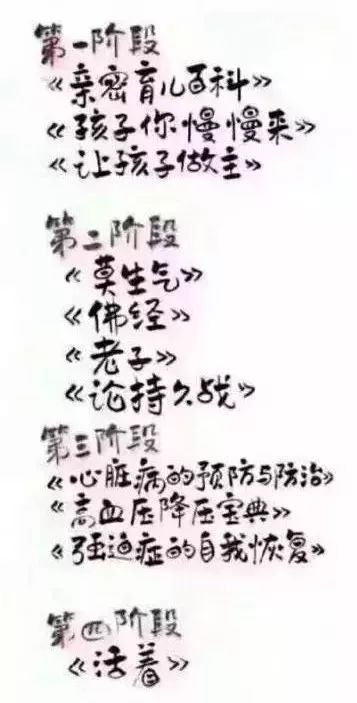 第一阶段
《亲密育儿百科》
《孩子你慢慢来》
《让孩子做主》
第二阶段
《莫生气》
《佛经》
《老子》
《论持久战》
第三阶段
《心脏病的预防与防治》
《高血压降压宝典》
《强迫症的自我恢复》
第四阶段
《活着》